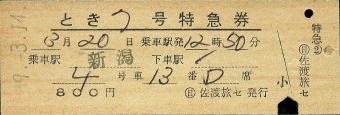 とき7号特急券
3月20日 乗車駅発12時50分
乗車駅 新潟 下車駅
4号車13番D席
800円 ㊐佐渡旅セ発行
小
特急(2)
㊐佐渡旅セ